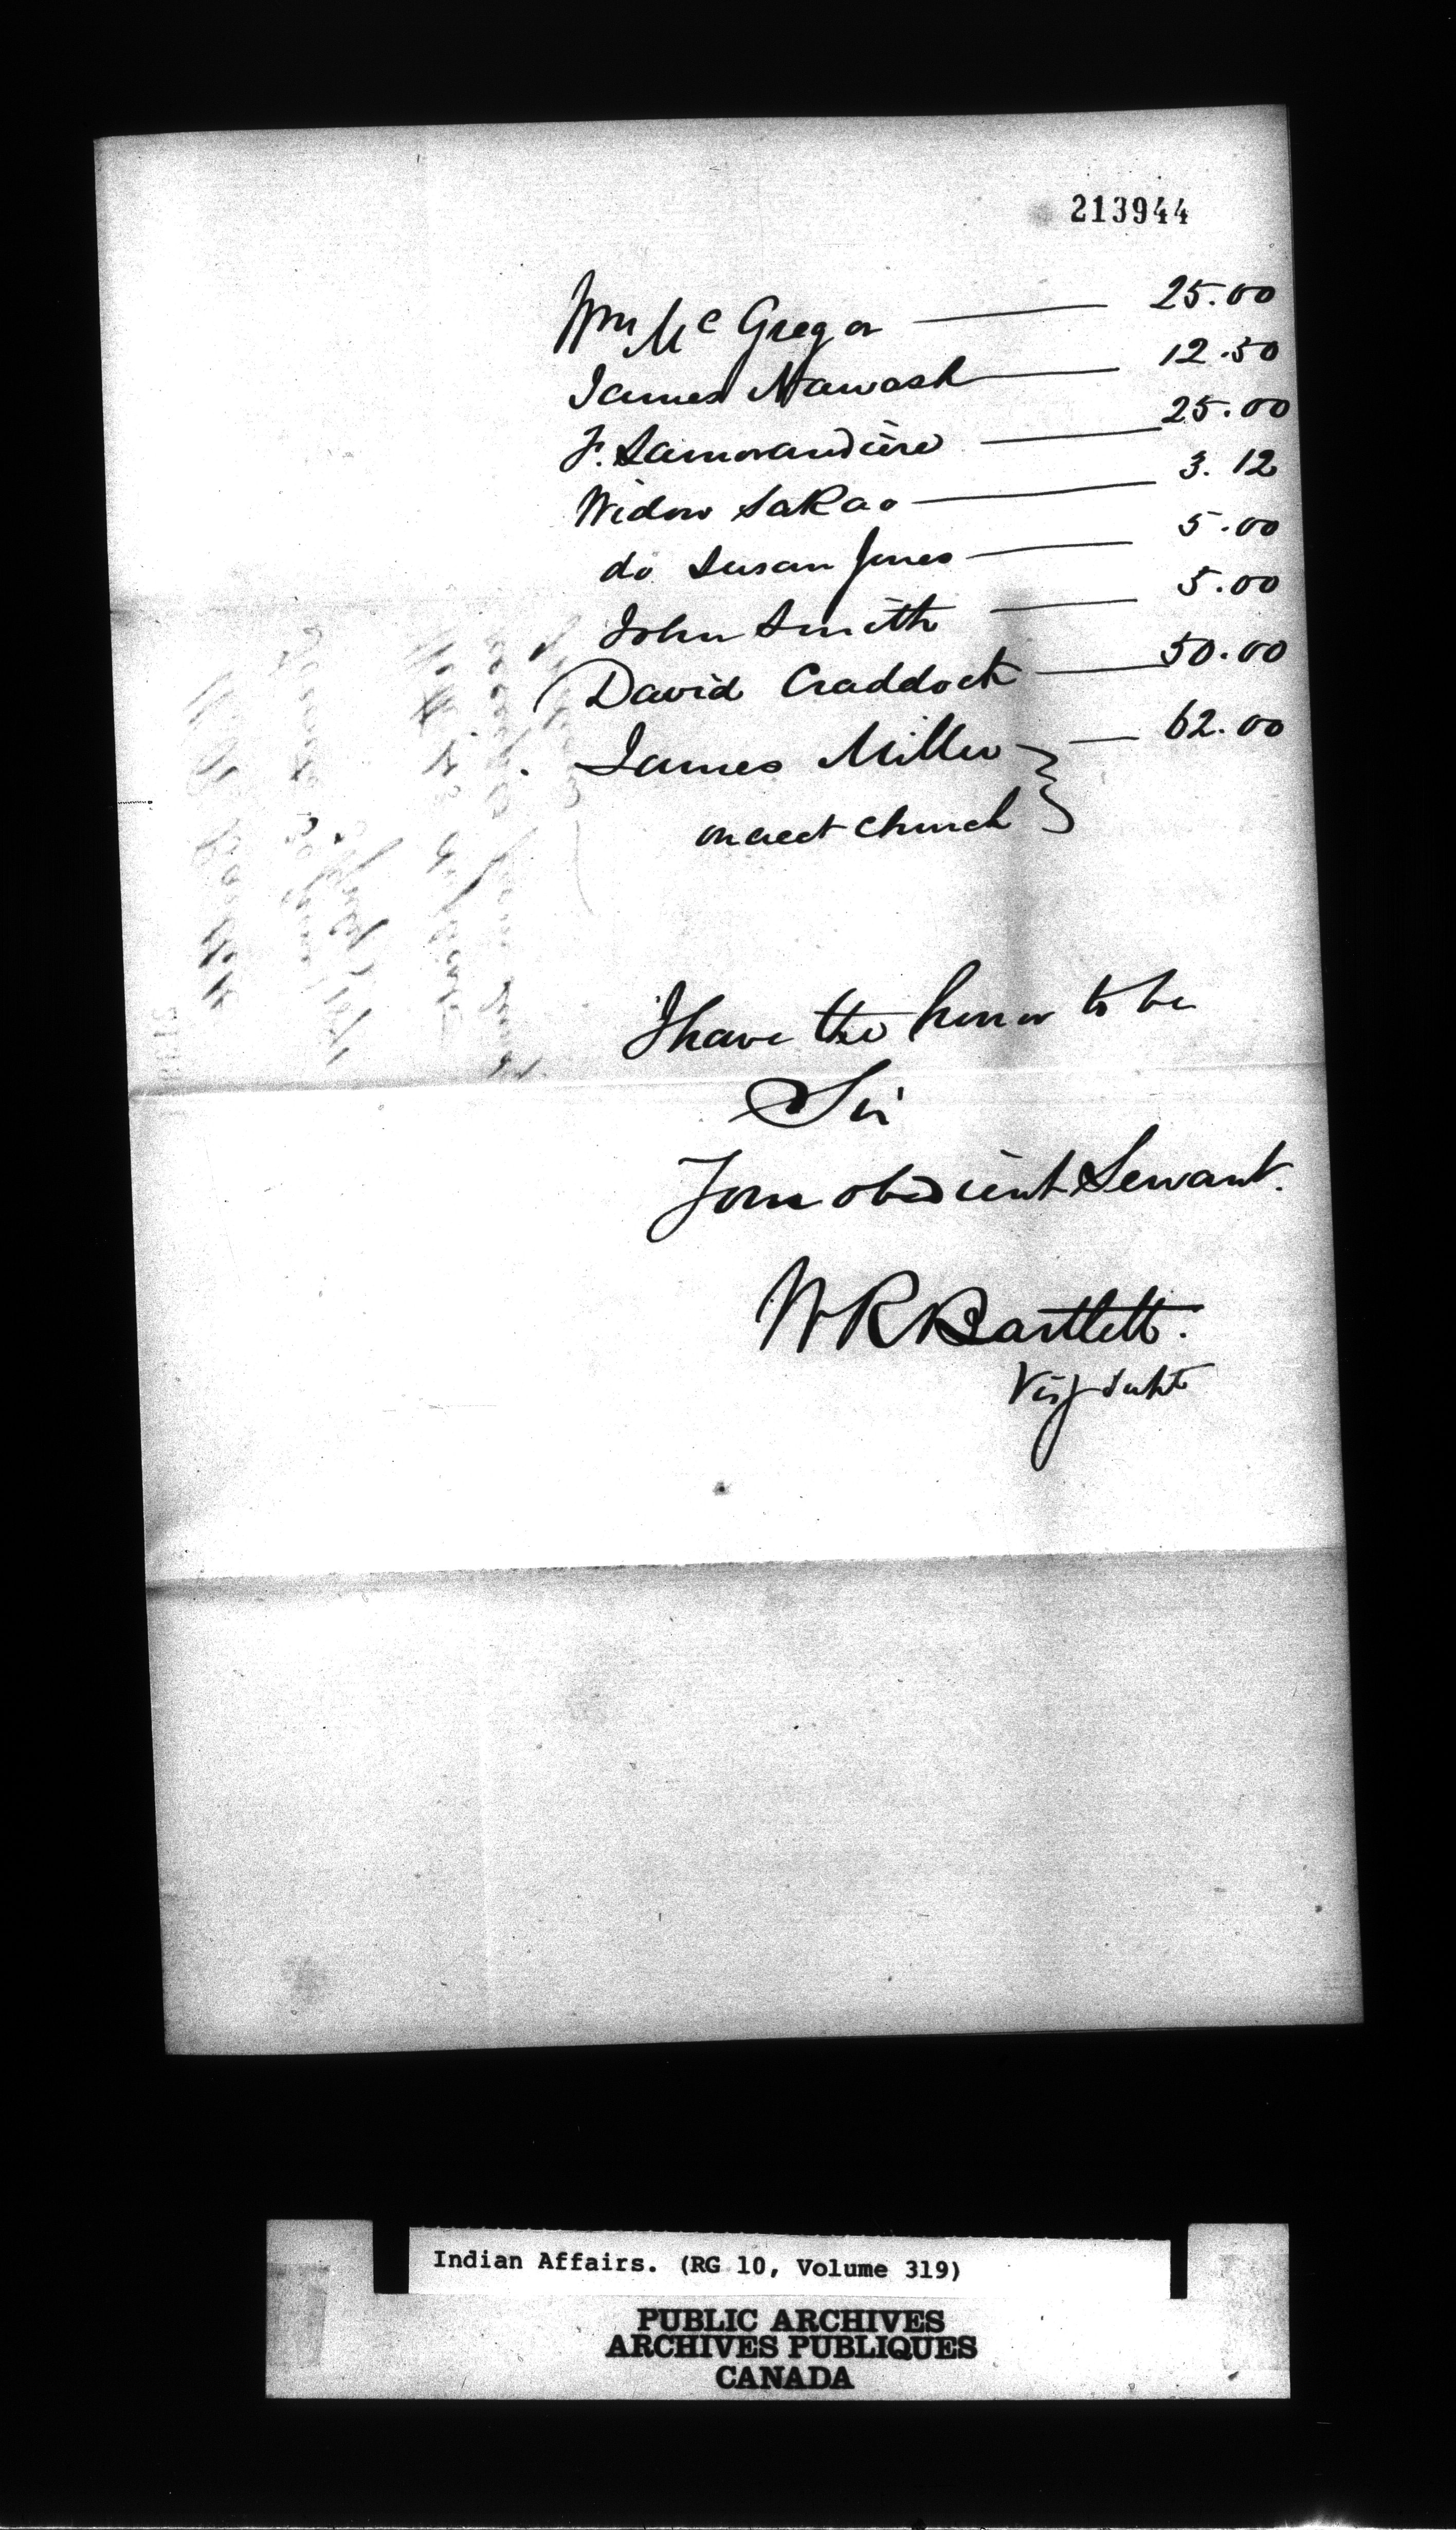 213944
Wm McGregor — 25.00
James Nawash — 12.50
F. Lamorandière — 25.00
Widow SaKao — 3.12
do Susan Jones — 5.00
John Smith — 5.00
David Craddock — 50.00
James Miller } — 62.00
on acct church
I have the honor to be
Sir
Your obedient Servant.
W R Bartlett.
Vis g Supt
Indian Affairs. (RG 10, Volume 319)
PUBLIC ARCHIVES
ARCHIVES PUBLIQUES
CANADA